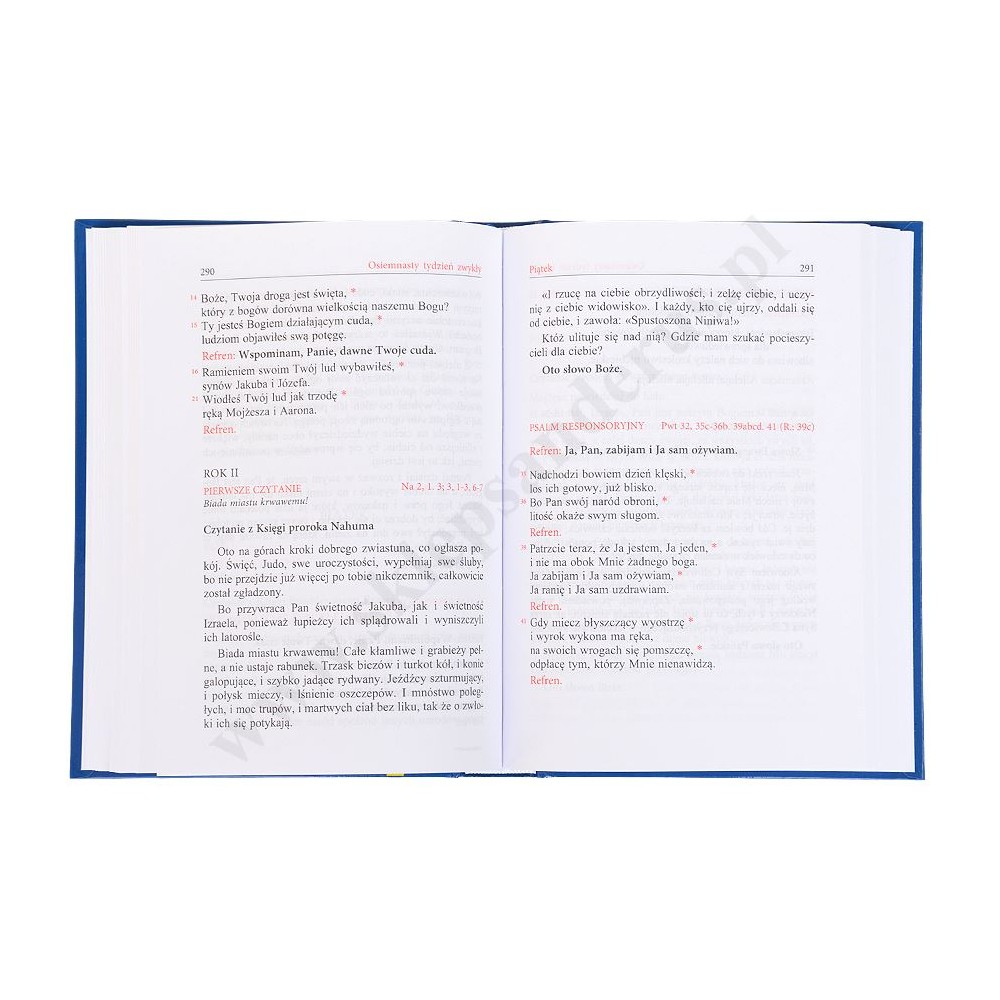 290 Osiemnasty tydzień zwykły
14 Boże, Twoja droga jest święta, *
który z bogów dorówna wielkością naszemu Bogu?
15 Ty jesteś Bogiem działającym cuda, *
ludziom objawiłeś swą potęgę.
Refren: Wspominam, Panie, dawne Twoje cuda.
16 Ramieniem swoim Twój lud wybawiłeś, *
synów Jakuba i Józefa.
21 Wiodłeś Twój lud jak trzodę *
ręką Mojżesza i Aarona.
Refren.
ROK II
PIERWSZE CZYTANIE Na 2, 1. 3; 3, 1-3. 6-7
Biada miastu krwawemu!
Czytanie z Księgi proroka Nahuma
Oto na górach kroki dobrego zwiastuna, co ogłasza po-
kój. Święć, Judo, swe uroczystości, wypełniaj swe śluby,
bo nie przejdzie już więcej po tobie nikczemnik, całkowicie
został zgładzony.
Bo przywraca Pan świetność Jakuba, jak i świetność
Izraela, ponieważ łupieżcy ich splądrowali i wyniszczyli
ich latorośle.
Biada miastu krwawemu! Całe kłamliwe i grabieży peł-
ne, a nie ustaje rabunek. Trzask biczów i turkot kół, i konie
galopujące, i szybko jadące rydwany. Jeźdźcy szturmujący,
i połysk mieczy, i lśnienie oszczepów. I mnóstwo poleg-
łych, i moc trupów, i martwych ciał bez liku, tak że o zwło-
ki ich się potykają.
Piątek 291
«I rzucę na ciebie obrzydliwości, i zelżę ciebie, i uczy-
nię z ciebie widowisko». I każdy, kto cię ujrzy, oddali się
od ciebie, i zawoła: «Spustoszona Niniwa!»
Któż ulituje się nad nią? Gdzie mam szukać pocieszy-
cieli dla ciebie?
Oto słowo Boże.
PSALM RESPONSORYJNY Pwt 32, 35c-36b. 39abcd. 41 (R.: 39c)
Refren: Ja, Pan, zabijam i Ja sam ożywiam.
35 Nadchodzi bowiem dzień klęski, *
los ich gotowy, już blisko.
36 Bo Pan swój naród obroni, *
litość okaże swym sługom.
Refren.
39 Patrzcie teraz, że Ja jestem, Ja jeden, *
i nie ma obok Mnie żadnego boga.
Ja zabijam i Ja sam ożywiam, *
Ja ranię i Ja sam uzdrawiam.
Refren.
41 Gdy miecz błyszczący wyostrzę *
i wyrok wykona ma ręka,
na swoich wrogach się pomszczę, *
odpłacę tym, którzy Mnie nienawidzą.
Refren.